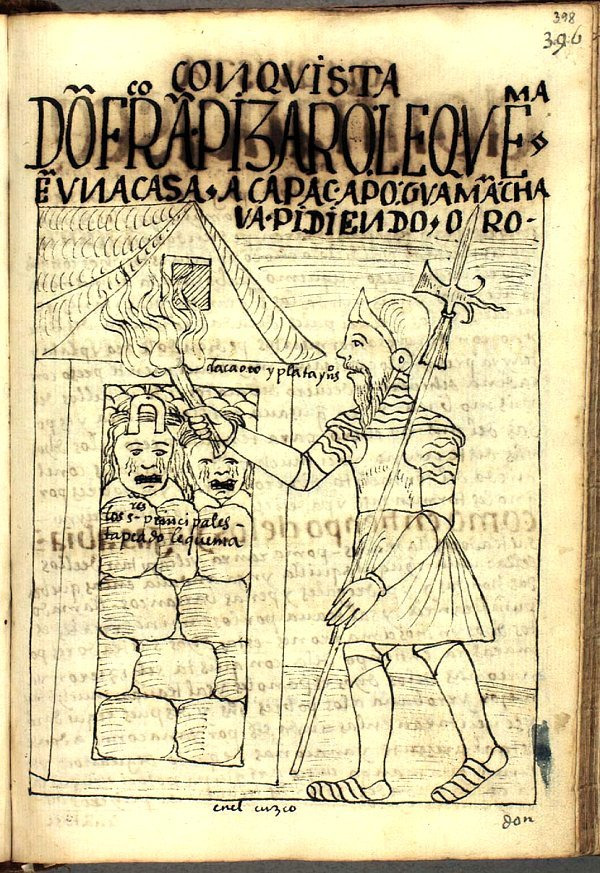 398
396
CONQVISTA
DŌ FRĀco PIZARO LE QVEMA
Ē VNA CASA A CAPAC APO GVAMĀ CHA
VA PIDIENDO ORO
daca oro y plata yn̄s
los s.res prencipales
tapeado le quema
en el cuzco
don